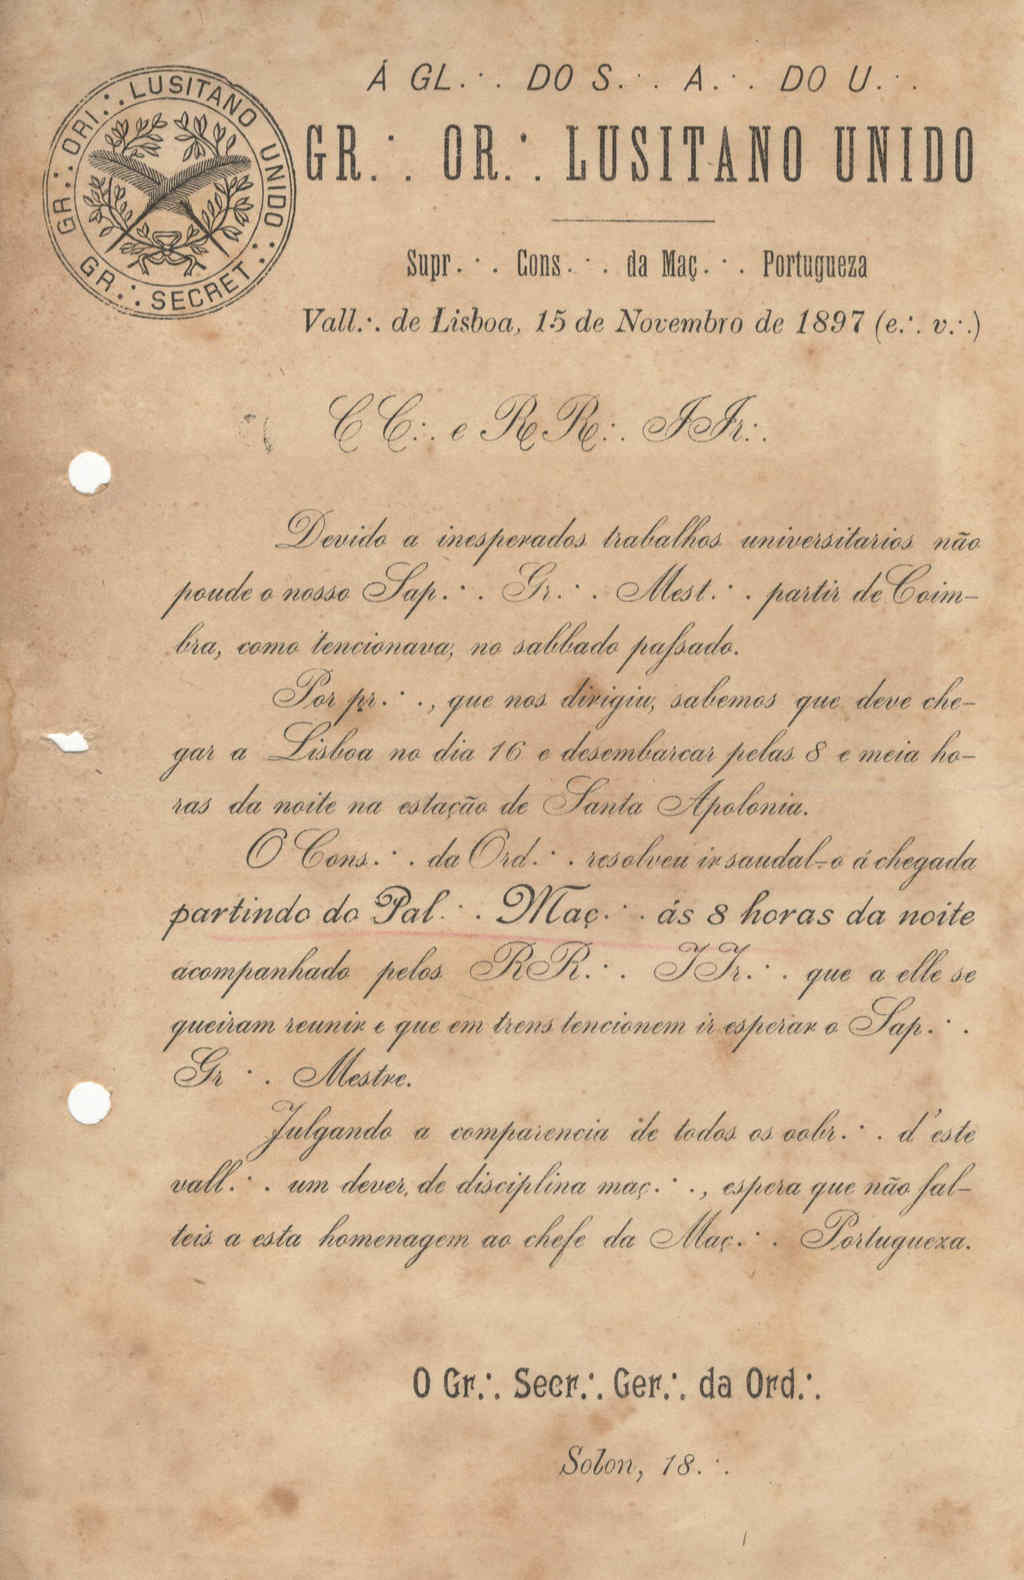 Á GL.·. DO S.·. A.·. DO U.·.
GR.·. OR.·. LUSITANO UNIDO
GR.·. ORI.·. LUSITANO UNIDO.·.
GR.·. SECRET.·.
Supr.·. Cons.·. da Maç.·. Portugueza
Vall.·. de Lisboa, 15 de Novembro de 1897 (e.·. v.·.)
CC.·. e RR.·. IIr.·.
Devido a inesperados trabalhos universitarios não
poude o nosso Sap.·. Gr.·. Mest.·. partir de Coim-
bra, como tencionava, no sabbado passado.
Por pr.·., que nos dirigiu, sabemos que deve che-
gar a Lisboa no dia 16 e desembarcar pelas 8 e meia ho-
ras da noite na estação de Santa Apolonia.
O Cons.·. da Ord.·. resolveu ir saudal-o á chegada
partindo do Pal.·. Maç.·. ás 8 horas da noite
acompanhado pelos RR.·. IIr.·. que a elle se
queiram reunir e que em trens tencionem ir esperar o Sap.·.
Gr.·. Mestre.
Julgando a comparencia de todos os oobr.·. d'este
vall.·. um dever, de disciplina maç.·., espera que não fal-
teis a esta homenagem ao chefe da Maç.·. Portugueza.
O Gr.·. Secr.·. Ger.·. da Ord.·.
Solon, 18.·.